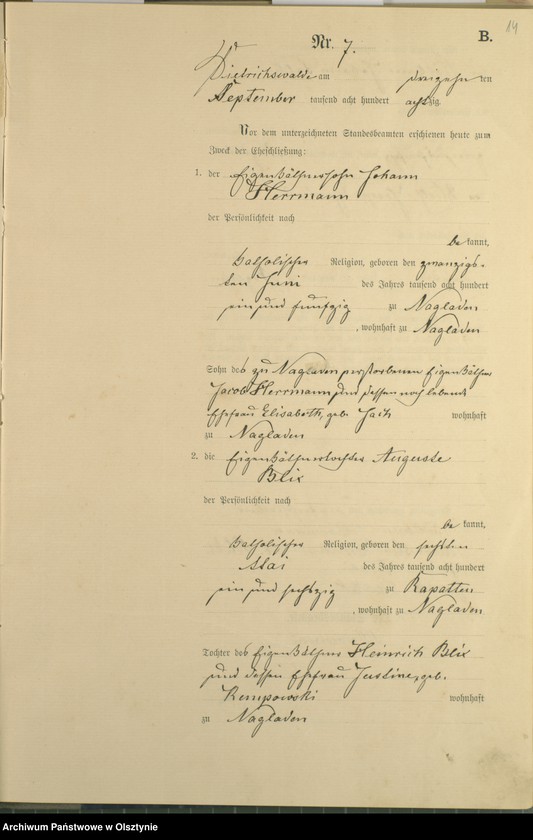 14
B.
Nr. 7.
Dietrichswalde am dreizehnten
September tausend acht hundert achtzig.
Vor dem unterzeichneten Standesbeamten erschienen heute zum
Zweck der Eheschließung:
1. der Eigenkäthnersohn Johann
Herrmann
der Persönlichkeit nach
be kannt,
katholischer Religion, geboren den zwanzigs-
ten Juni des Jahres tausend acht hundert
ein und fünfzig zu Nagladen
, wohnhaft zu Nagladen
Sohn des zu Nagladen verstorbenen Eigenkäthner
Jacob Herrmann und dessen noch lebende
Ehefrau Elisabeth, geb. wohnhaft
zu Nagladen
2. die Eigenkäthnertochter Auguste
Blix
der Persönlichkeit nach
be kannt,
katholischer Religion, geboren den sechsten
Mai des Jahres tausend acht hundert
ein und sechszig zu Rapatten
, wohnhaft zu Nagladen
Tochter des Eigenkäthners Heinrich Blix
und dessen Ehefrau Justine, geb.
Kempowski wohnhaft
zu Nagladen
Archiwum Państwowe w Olsztynie